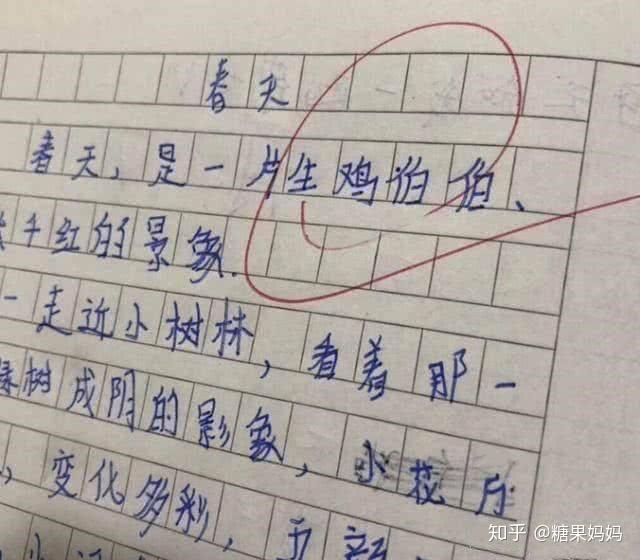 春天
春天,是一片生鸡伯伯、
千红的景象.
一走近小树林,看着那一
树成阴的影象,小花片
,变化多彩,五颜
知乎 @糖果妈妈